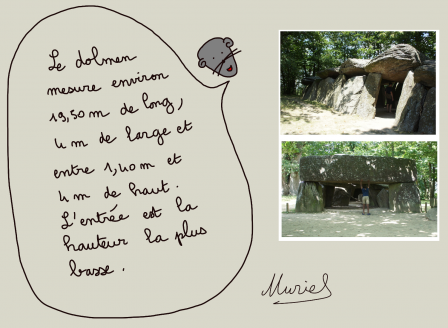 Le dolmen
mesure environ
19,50 m de long,
4 m de large et
entre 1,40 m et
4 m de haut.
L'entrée est la
hauteur la plus
basse.
Muriel